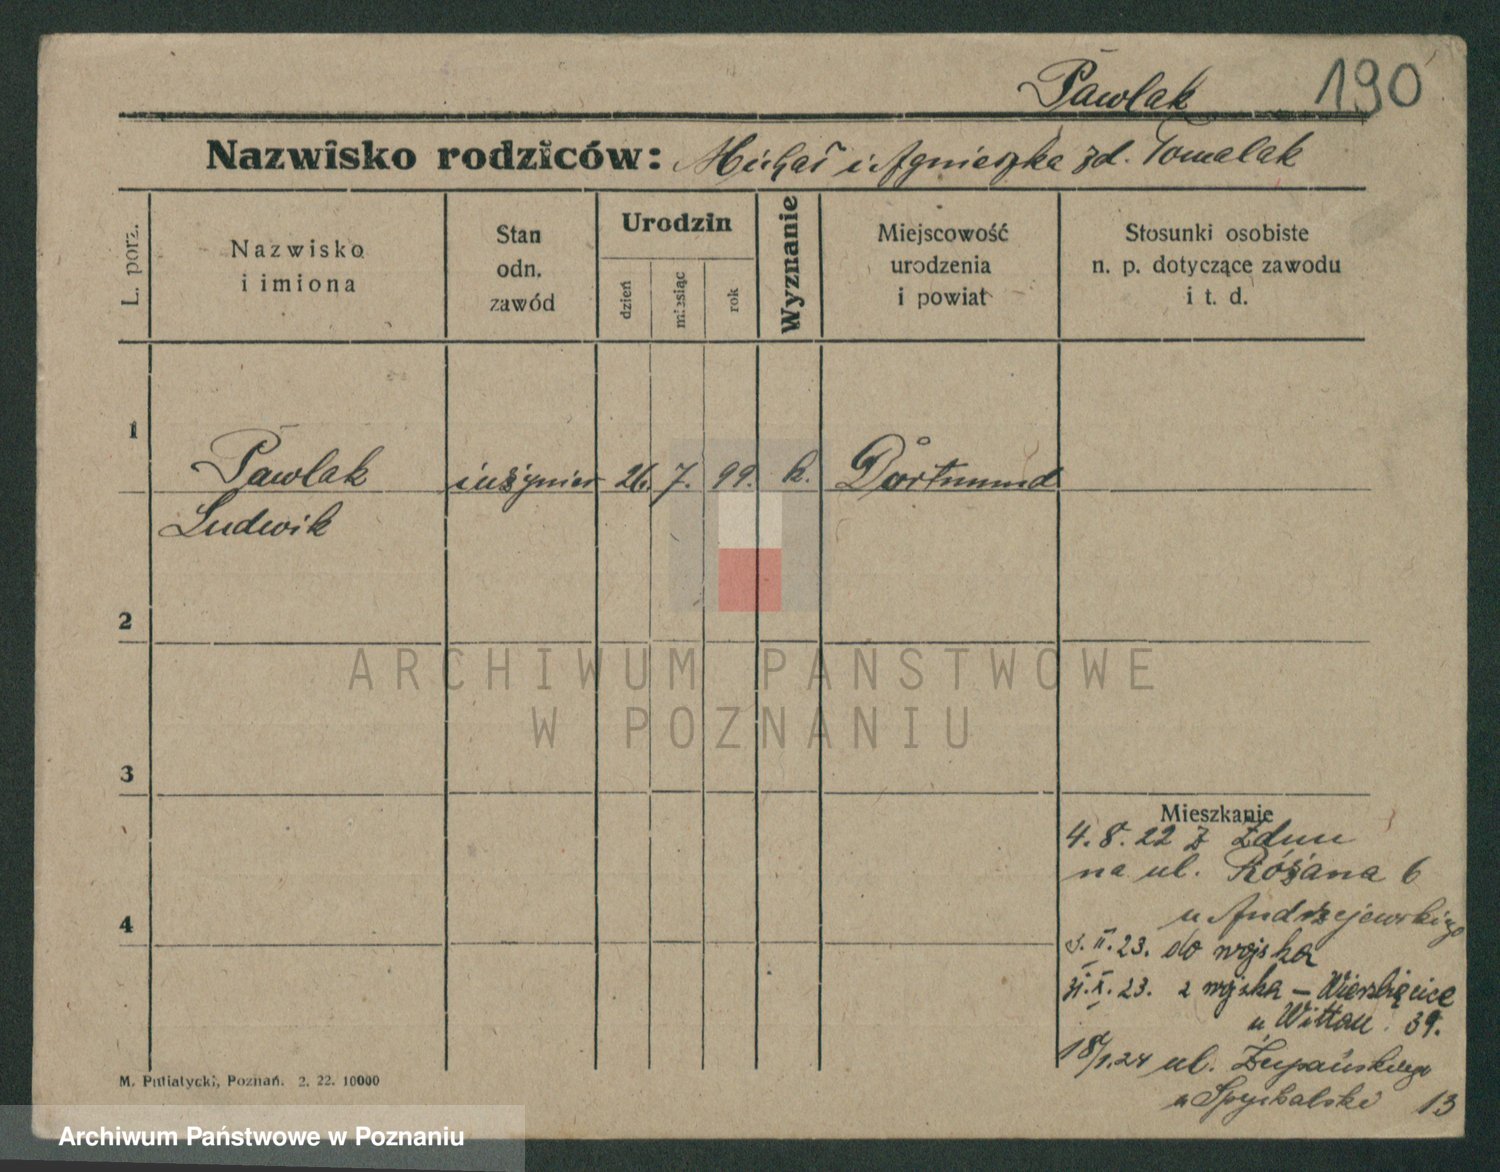 Pawlak 190
Nazwisko rodziców: Michał i Agnieszka zd. Tomalak
L. porz.
Nazwisko
i imiona
Stan
odn.
zawód
Urodzin
dzień
miesiąc
rok
Wyznanie
Miejscowość
urodzenia
i powiat
Stosunki osobiste
n. p. dotyczące zawodu
i t. d.
1
Pawlak inżynier 26. 7. 99. k. Dortmund
Ludwik
2
ARCHIWUM PAŃSTWOWE
W POZNANIU
3
Mieszkanie
4. 8. 22 z Zdun
na ul. Różana 6
4
u Andrzejewskiego
II. 23. do wojska
31. X. 23. z wojska – Wierzbięcice
u Wittau 39.
18/1.24 ul. Żupańskiego
u Spychalski 13
M. Putiatycki, Poznań. 2. 22. 10000
Archiwum Państwowe w Poznaniu